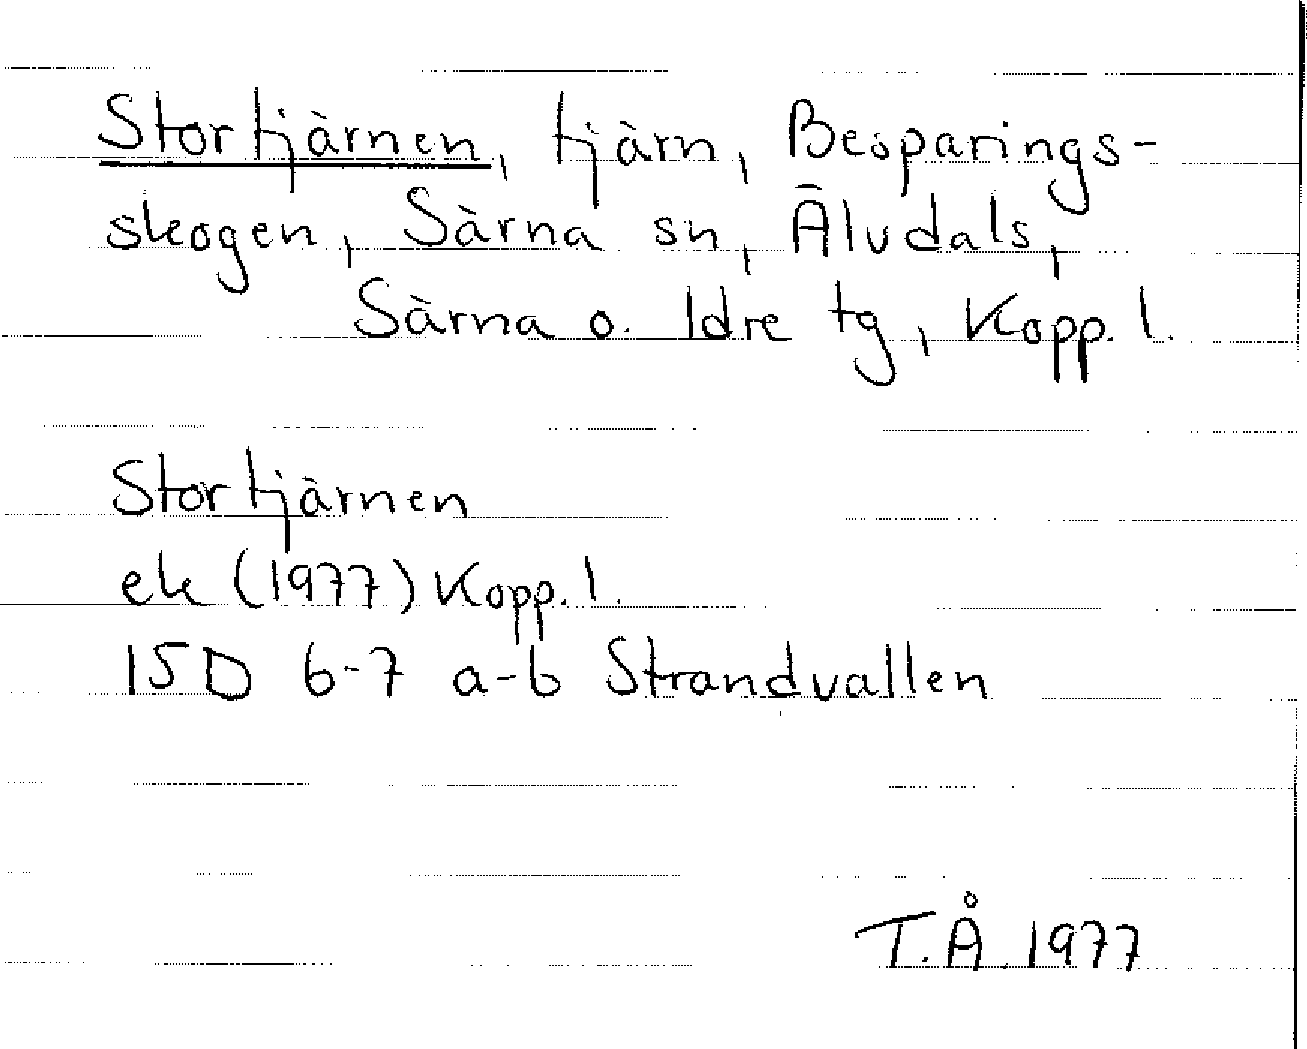 Stortjärnen, tjärn, Besparings-
skogen, Särna sn, Älvdals,
Särna o. Idre tg, Kopp. l.
Stortjärnen
ek (1977) Kopp. l.
15D 6-7 a-b Strandvallen
T.Å. 1977